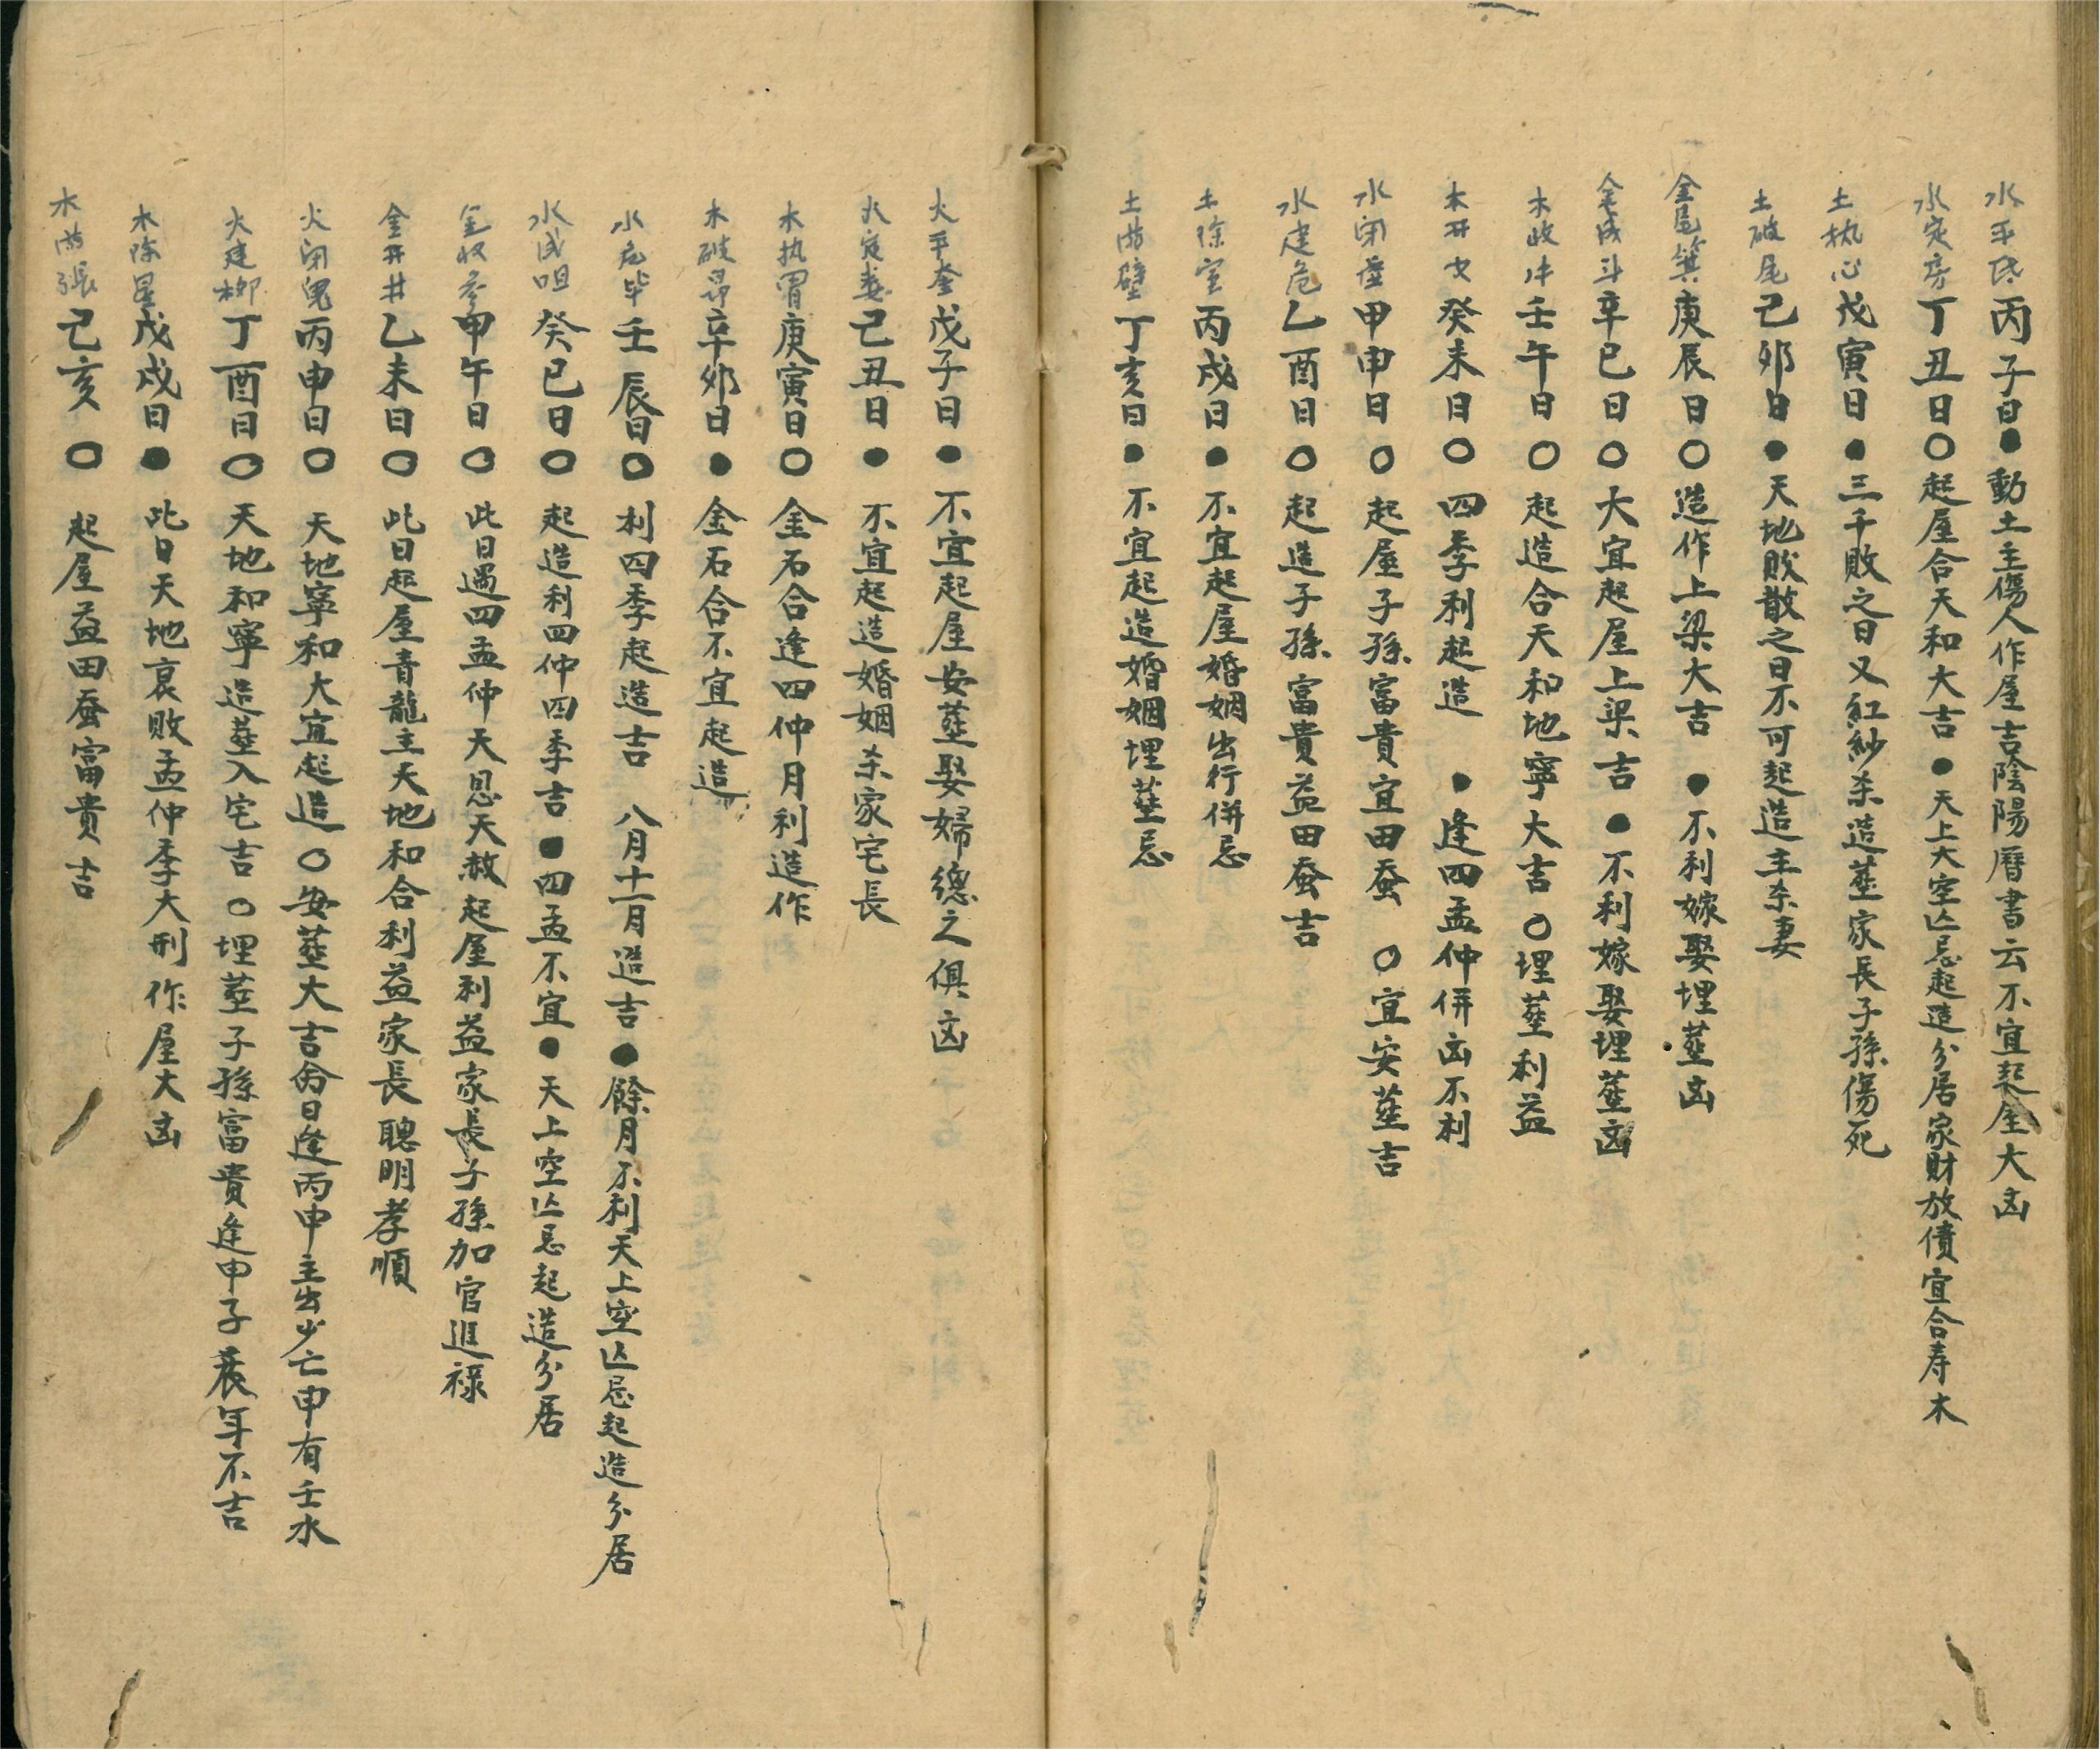 水平氐丙子日●動土主傷人作屋吉陰陽曆書云不宜起屋大凶
水定房丁丑日○起屋合天和大吉●天上大空亡忌起造分居家財放債宜合寿木
土执心戊寅日●三千敗之日又紅紗杀造塟家長子孫傷死
土破尾己夘日●天地敗散之日不可起造主杀妻
金危箕庚辰日○造作上梁大吉●不利嫁娶埋塟凶
金成斗辛巳日○大宜起屋上梁吉●不利嫁娶埋塟凶
木收牛壬午日○起造合天和地寧大吉○埋塟利益
木开女癸未日○四季利起造●逢四孟仲併凶不利
水闭虚甲申日○起屋子孫富貴宜田蚕○宜安塟吉
水建危乙酉日○起造子孫富貴益田蚕吉
土除室丙戌日●不宜起屋婚姻出行併忌
土满壁丁亥日●不宜起造婚姻埋塟忌
火平奎戊子日●不宜起屋安塟娶婦總之俱凶
火定娄己丑日●不宜起造婚姻杀家宅長
木执胃庚寅日○金石合逢四仲月利造作
木破昴辛夘日●金石合不宜起造
水危毕壬辰日○利四季起造吉 八月十一月造吉●餘月不利天上空亡忌起造分居
水成咀癸巳日○起造利四仲四季吉●四孟不宜●天上空亡忌起造分居
金收参甲午日○此日遇四孟仲天恩天赦起屋利益家長子孫加官進禄
金开井乙未日○此日起屋青龍主天地和合利益家長聰明孝順
火闭鬼丙申日○天地寧和大宜起造○安塟大吉命日逢丙申主出少亡申有壬水
火建柳丁酉日○天地和寧造塟入宅吉○埋塟子孫富貴逢申子辰年不吉
木除星戊戌日●此日天地衰敗孟仲季大刑作屋大凶
木满張己亥○起屋益田蚕富貴吉